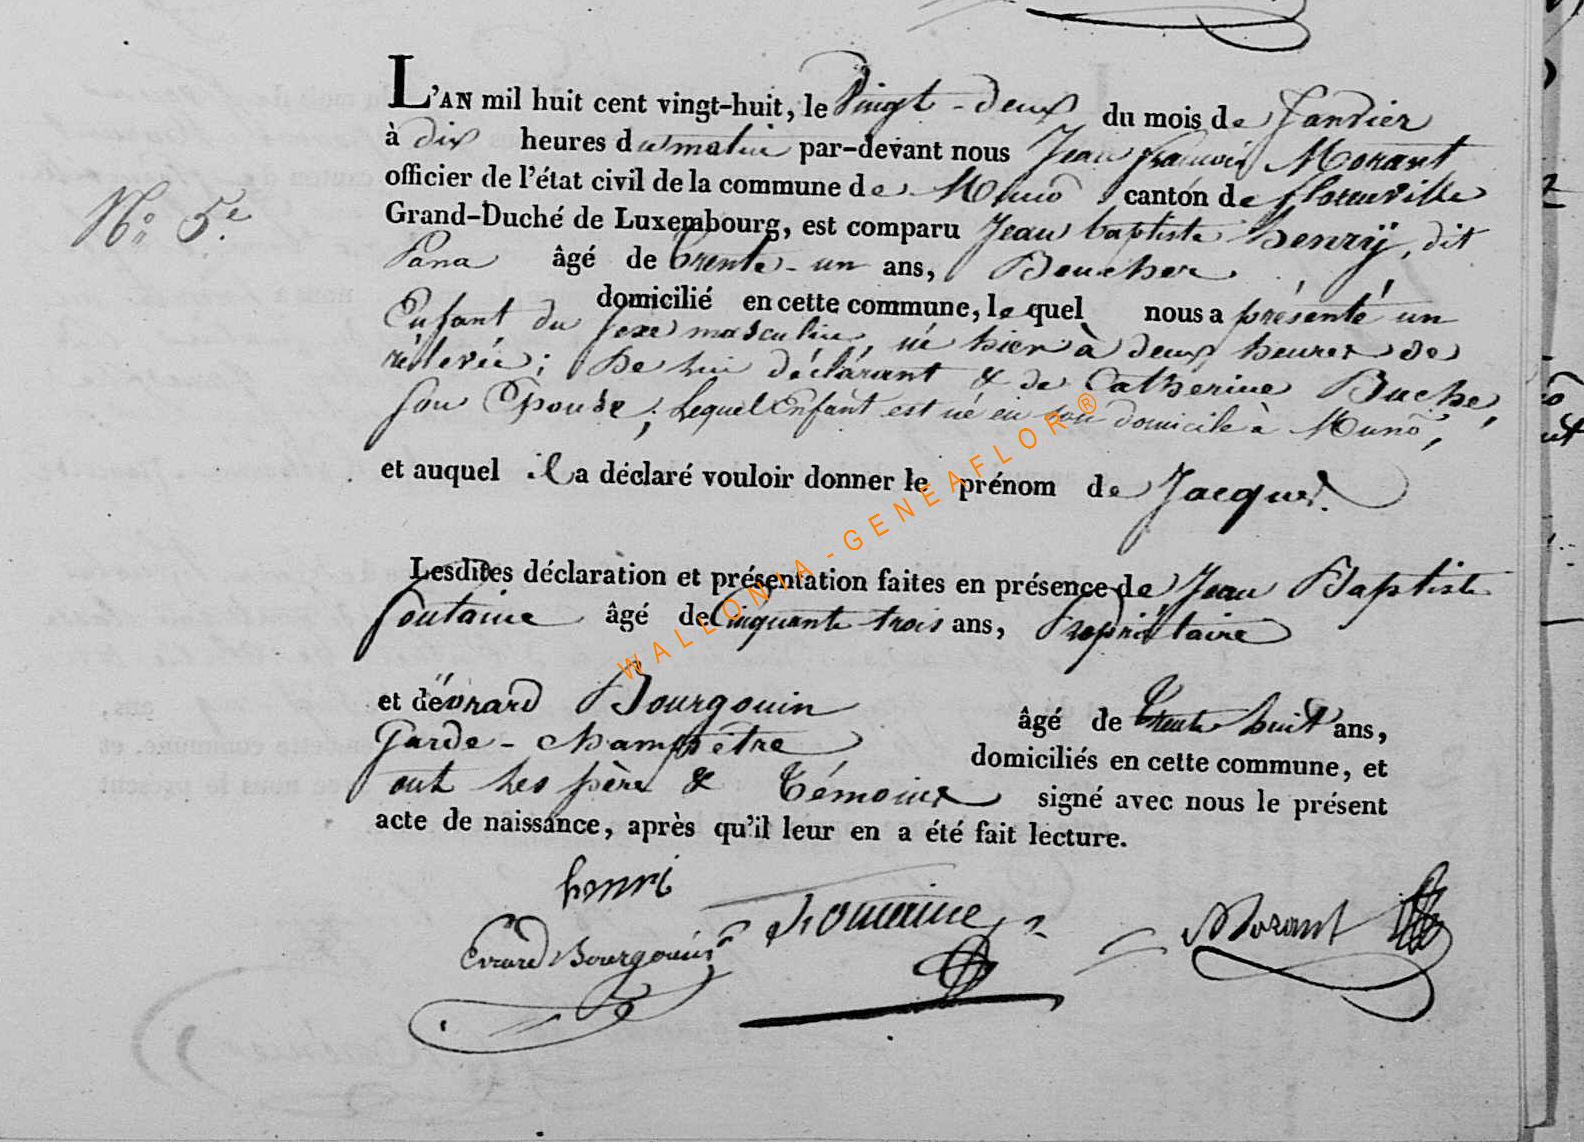 L'AN mil huit cent vingt-huit, le Vingt-deux du mois de Janvier
à dix heures du matin par-devant nous Jean françois Morant
officier de l'état civil de la commune de Muno canton de florenville
Grand-Duché de Luxembourg, est comparu Jean baptiste henrÿ, dit
N.° 5.e
Pana âgé de trente-un ans, Boucher
domicilié en cette commune, lequel nous a présenté un
Enfant du sexe masculin, né hier à deux heures de
rélevée; De lui déclarant & de Catherine Buche,
son Epouse; Lequel Enfant est né en son domicile à Muno,
et auquel il a déclaré vouloir donner le prénom de Jacques.
Lesdites déclaration et présentation faites en présence de Jean Baptiste
fontaine âgé de Cinquante trois ans, Propriétaire
et d'évrard Bourgouin âgé de trente huit ans,
Garde-champêtre domiciliés en cette commune, et
ont les père & témoins signé avec nous le présent
acte de naissance, après qu'il leur en a été fait lecture.
henri
Evrard Bourgouin fontaine Morant
WALLONIA-GENEAFLOR®